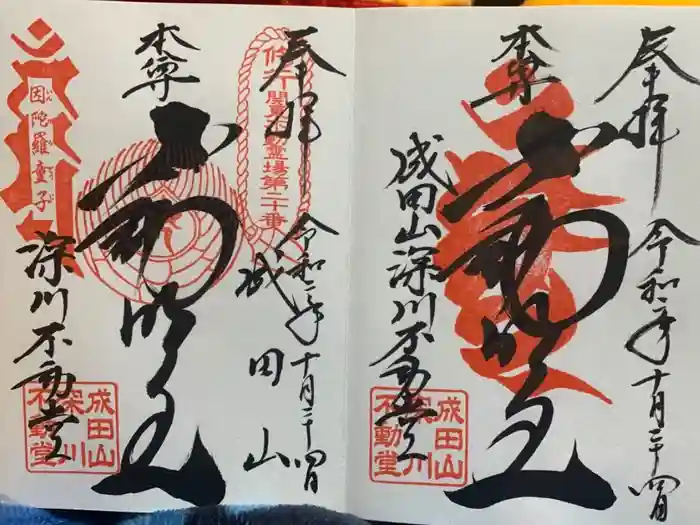 奉拝
令和二年十月二十四日
本尊
不動明王
成田山深川不動堂
成田山
深川
不動堂
奉拝
令和二年十月二十四日
修行
関東不動霊場第二十番
成田山
本尊
不動明王
因陀羅童子
深川不動堂
成田山
深川
不動堂